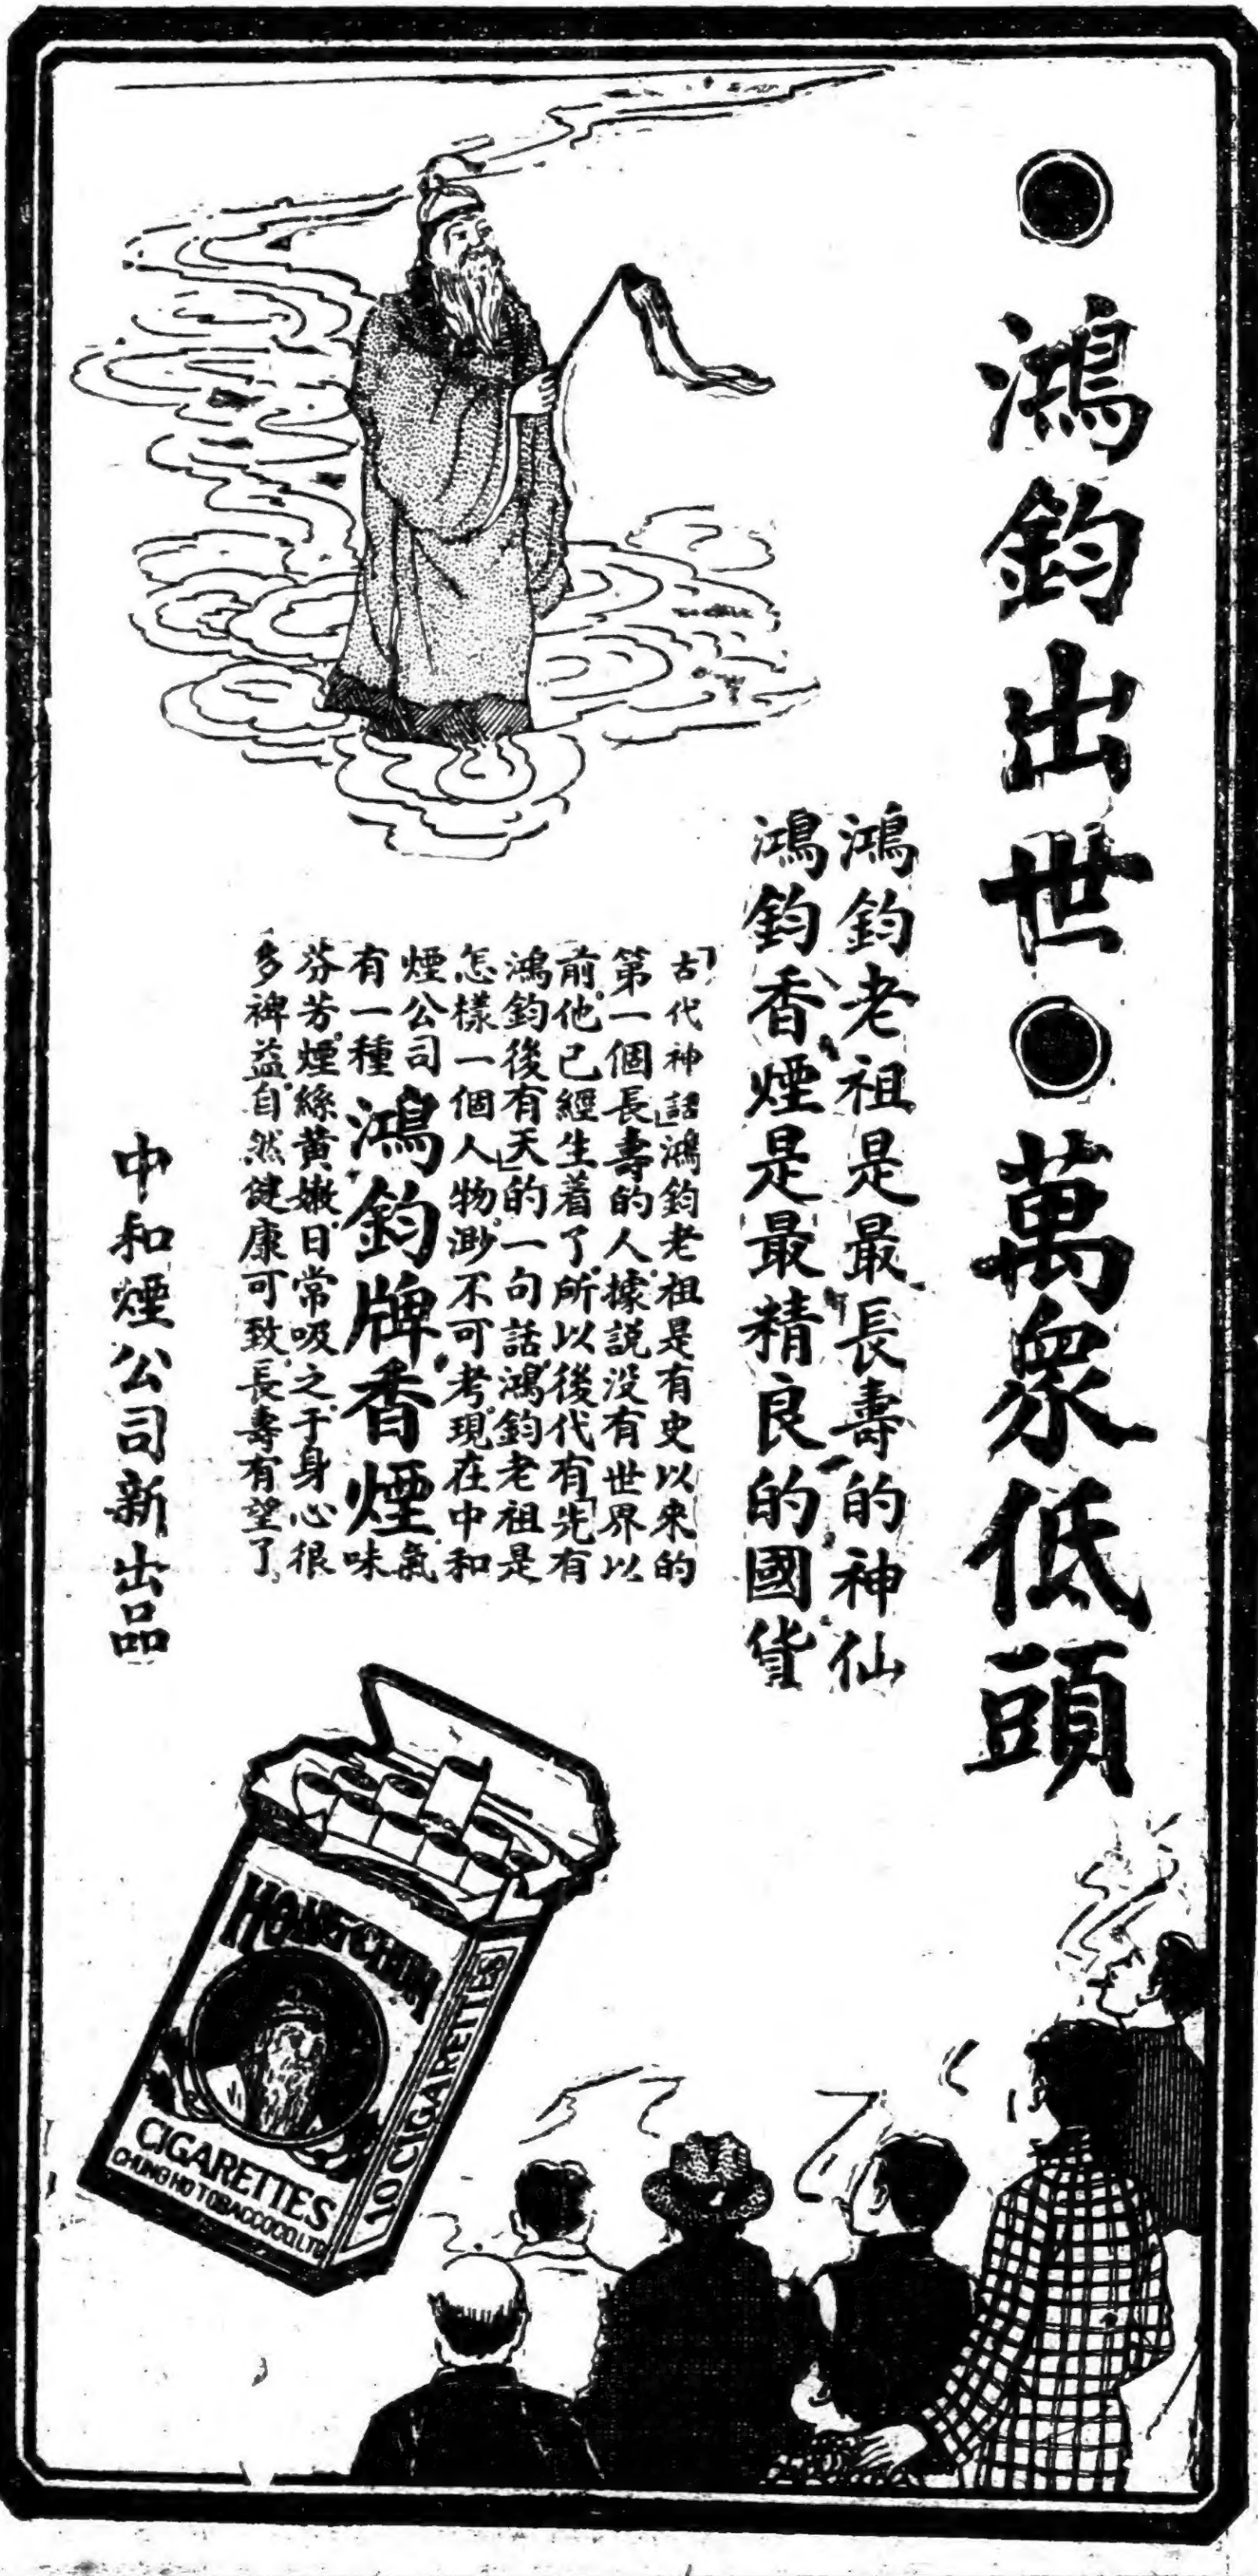 ●鴻鈞出世●萬衆低頭
鴻鈞老祖是最長壽的神仙
鴻鈞香煙是最精良的國貨
「古代神話」鴻鈞老祖是有史以來的
第一個長壽的人。據説没有世界以
前。他已經生着了。所以後代有「先有
鴻鈞後有天」的一句話。鴻鈞老祖是
怎樣一個人物。渺不可考。現在中和
煙公司
有一種鴻鈞牌香煙。氣味
芬芳。煙絲黄嫩。日常吸之。于身心很
多裨益。自然健康可致。長壽有望了。
中和煙公司新出品
HOUNG CHUN
CIGARETTES
CHUNG HO TOBACCO CO. LTD
10 CIGARETTES